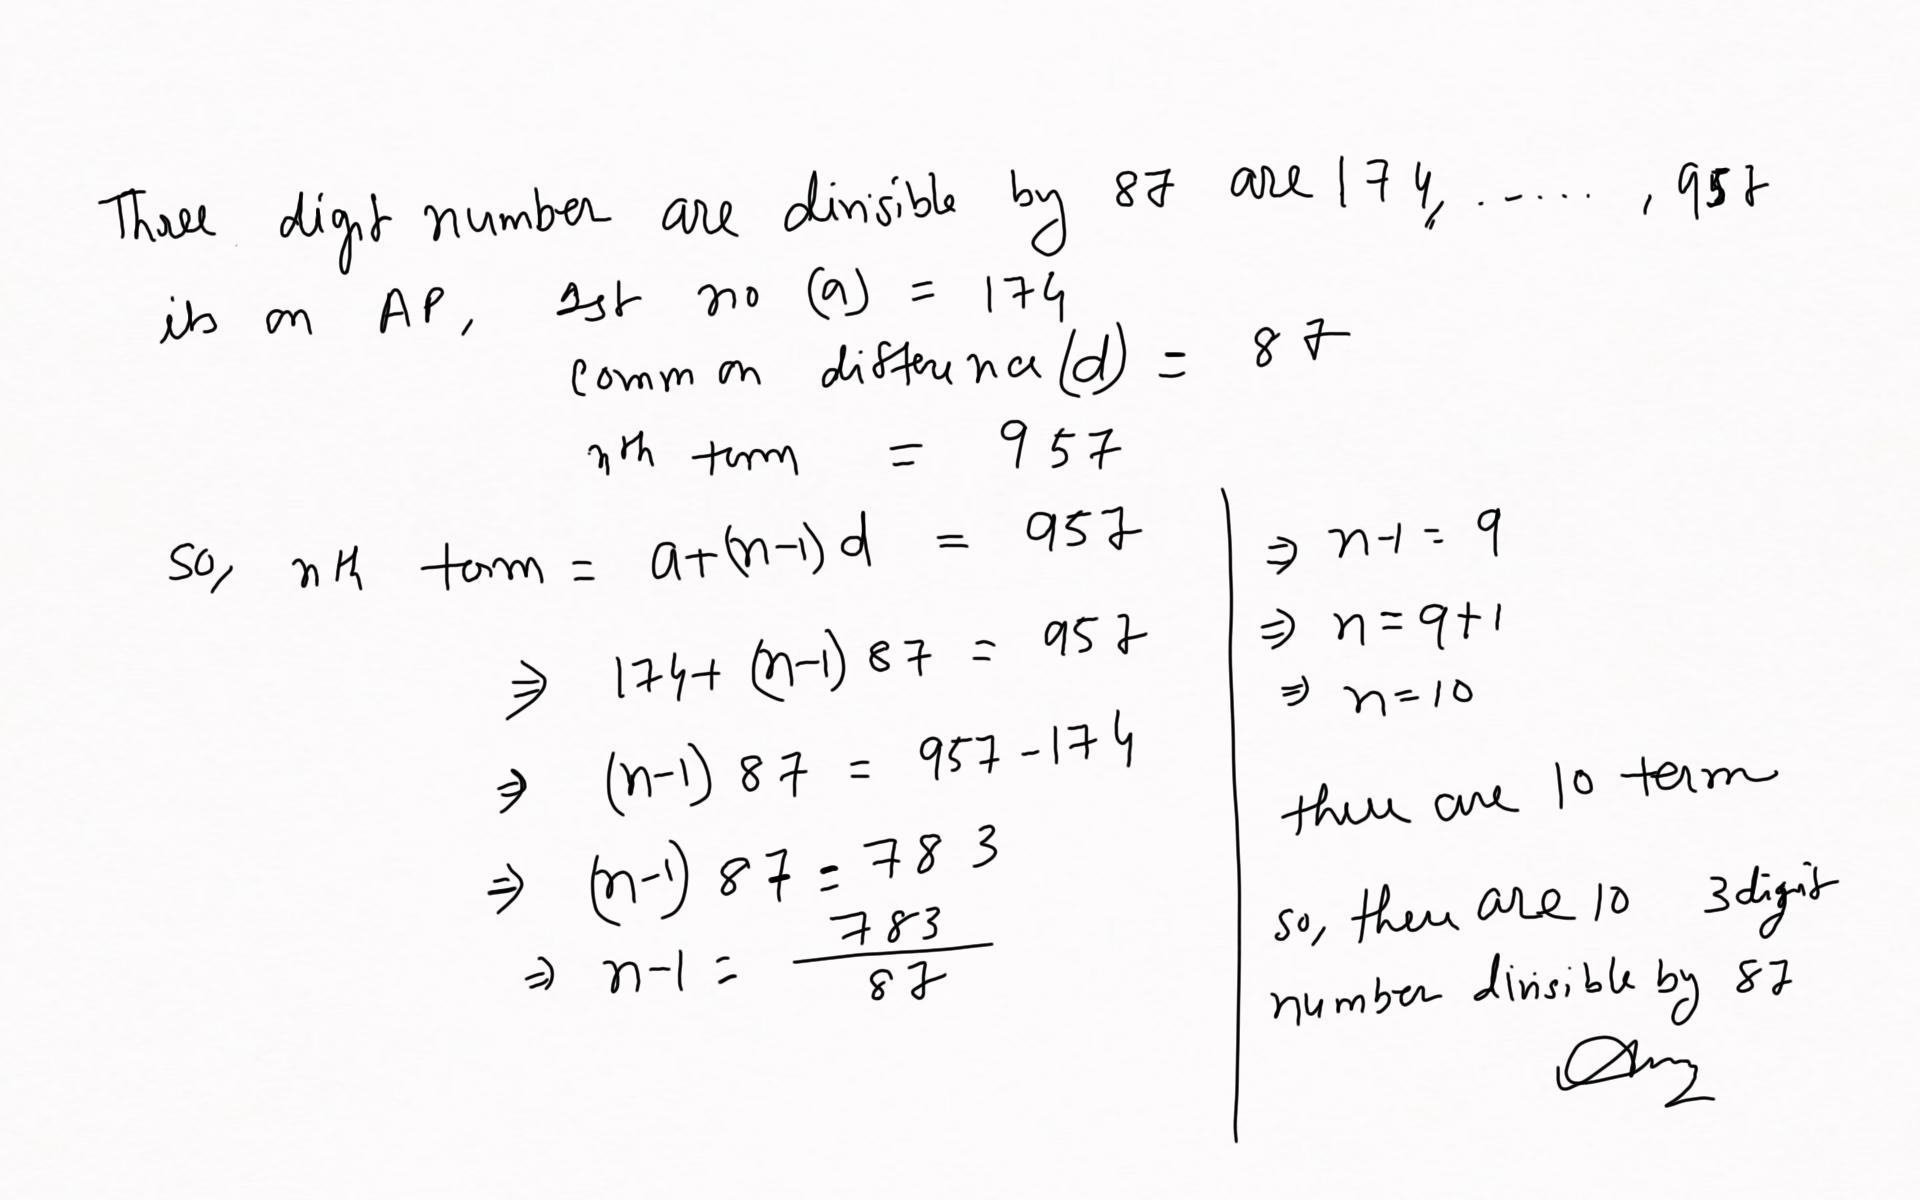 Three digit number are divisible by 87 are 174, ....., 957
its an AP, 1st no (a) = 174
common difference (d) = 87
nth term = 957
So, nth term = a+(n-1)d = 957
⇒ 174+ (n-1) 87 = 957
⇒ (n-1) 87 = 957 - 174
⇒ (n-1) 87 = 783
⇒ n-1 = 783/87
⇒ n-1 = 9
⇒ n = 9+1
⇒ n = 10
there are 10 term
so, there are 10 3 digit
number divisible by 87
Ans